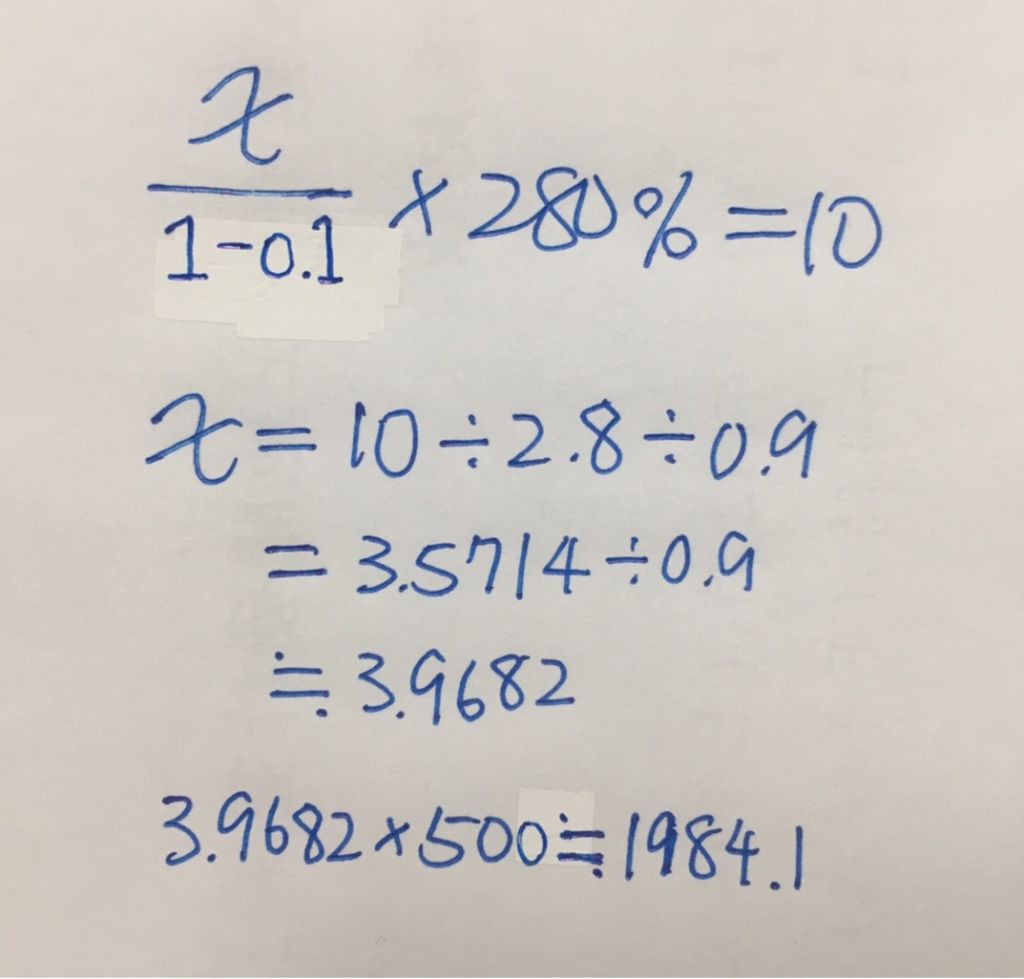 x/(1-0.1) × 280% = 10
x = 10 ÷ 2.8 ÷ 0.9
= 3.5714 ÷ 0.9
≒ 3.9682
3.9682 × 500 ≒ 1984.1